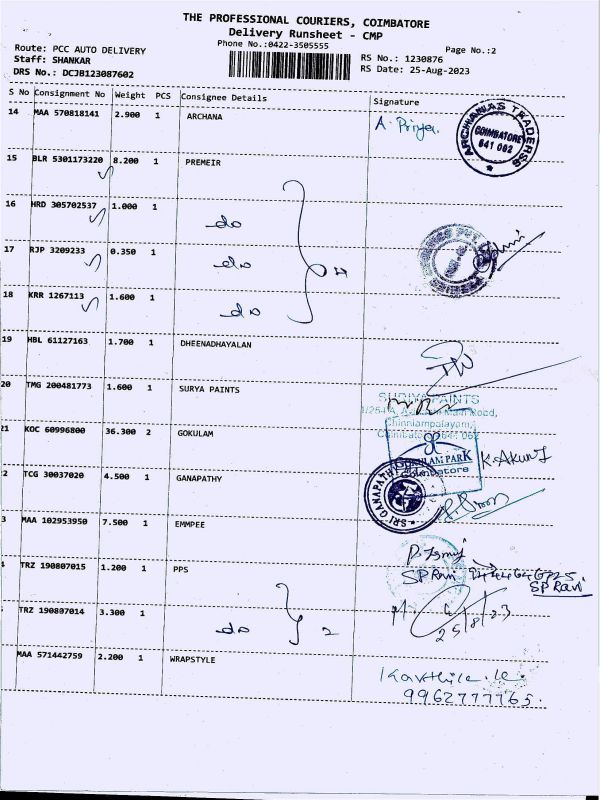 THE PROFESSIONAL COURIERS, COIMBATORE
Delivery Runsheet - CMP
Phone No.:0422-3505555
Page No.:2
Route: PCC AUTO DELIVERY
RS No.: 1230876
Staff: SHANKAR
RS Date: 25-Aug-2023
DRS No.: DCJB123087602
S No Consignment No Weight PCS Consignee Details Signature
14 MAA 570818141 2.900 1 ARCHANA A. Priya
ARCHANAS TRADERS COIMBATORE 641 062
15 BLR 5301173220 8.200 1 PREMEIR
16 HRD 305702537 1.000 1 do
17 RJP 3209233 0.350 1 do
18 KRR 1267113 1.600 1 do
19 HBL 61127163 1.700 1 DHEENADHAYALAN
20 TMG 200481773 1.600 1 SURYA PAINTS
SURIYA PAINTS
Main Road,
Chinniampalayam,
Coimbatore - 641 062
21 KOC 60996800 36.300 2 GOKULAM
GOKULAM PARK
Coimbatore
2 TCG 30037020 4.500 1 GANAPATHY
SRI GANAPATHY
3 MAA 102953950 7.500 1 EMMPEE
TRZ 190807015 1.200 1 PPS
SP Ravi
SP Ravi
TRZ 190807014 3.300 1 do 2
25/8/23
MAA 571442759 2.200 1 WRAPSTYLE
9962777765.